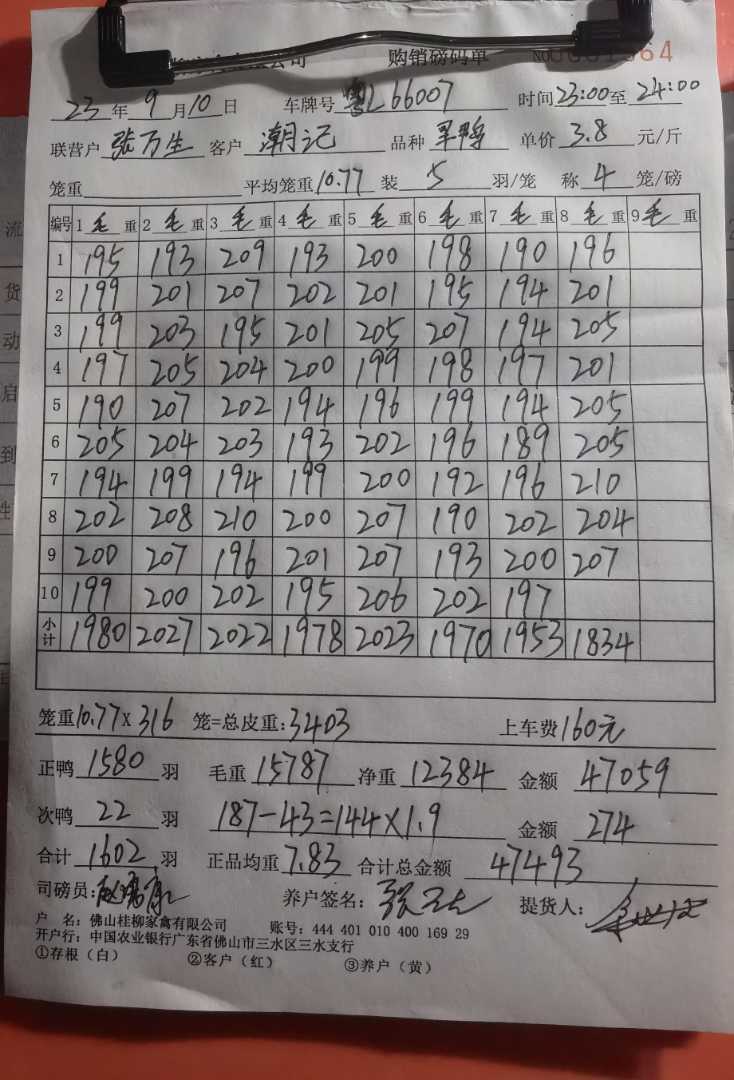 公司 购销磅码单 No 64
23年9月10日 车牌号 粤L66007 时间23:00至24:00
联营户 张万生 客户 潮记 品种 单价 3.8 元/斤
笼重 平均笼重10.77 装 5 羽/笼 称 4 笼/磅
编号 1 毛 重 2 毛 重 3 毛 重 4 毛 重 5 毛 重 6 毛 重 7 毛 重 8 毛 重 9 毛 重
1 195 193 209 193 200 198 190 196
2 199 201 207 202 201 195 194 201
3 199 203 195 201 205 207 194 205
4 197 205 204 200 199 198 197 201
5 190 207 202 194 196 199 194 205
6 205 204 203 193 202 196 189 205
7 194 199 194 199 200 192 196 210
8 202 208 210 200 207 190 202 204
9 200 207 196 201 207 193 200 207
10 199 200 202 195 206 202 197
小计 1980 2027 2022 1978 2023 1970 1953 1834
笼重10.77X 316 笼=总皮重:3403 上车费160元
正鸭 1580 羽 毛重 15787 净重 12384 金额 47059
次鸭 22 羽 187-43=144×1.9 金额 274
合计 1602 羽 正品均重 7.83 合计总金额 47493
司磅员: 养户签名: 提货人:
户 名: 佛山桂柳家禽有限公司 账号: 444 401 010 400 169 29
开户行: 中国农业银行广东省佛山市三水区三水支行
①存根(白) ②客户(红) ③养户(黄)
流
货
动
启
到
性